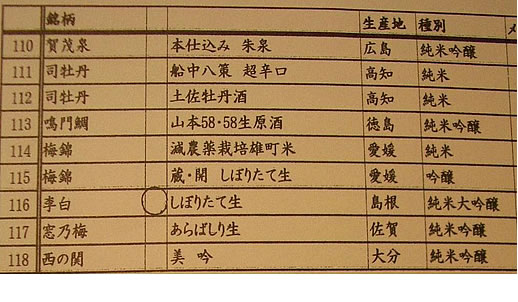 銘柄 生産地 種別
110 賀茂泉 本仕込み 朱泉 広島 純米吟醸
111 司牡丹 船中八策 超辛口 高知 純米
112 司牡丹 土佐牡丹酒 高知 純米
113 鳴門鯛 山本58・58生原酒 徳島 純米吟醸
114 梅錦 減農薬栽培雄町米 愛媛 純米
115 梅錦 蔵・開 しぼりたて生 愛媛 吟醸
116 李白 しぼりたて生 島根 純米大吟醸
117 窓乃梅 あらばしり生 佐賀 純米吟醸
118 西の関 美 吟 大分 純米吟醸